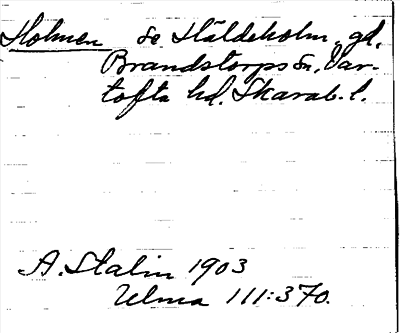 Holmen se Häldeholm, gd,
Brandstorps sn, Var-
tofta hd. Skarab. l.
A. Stalin 1903
Ulma 111:370.